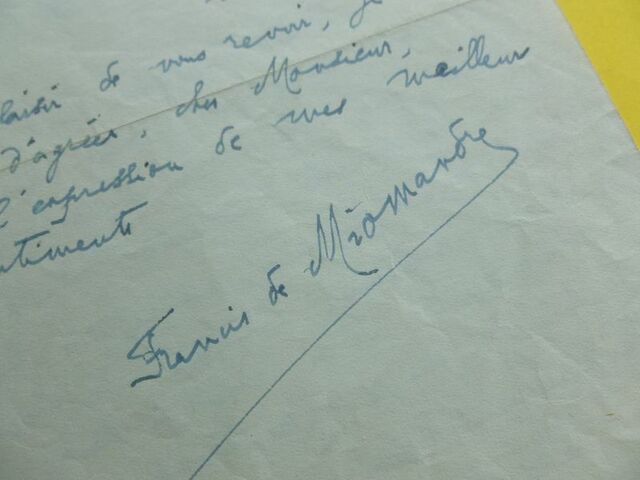 laisir de vous revoir, je
d'agréer, cher Monsieur,
l'expression de mes meilleurs
ntiments
Francis de Miomandre